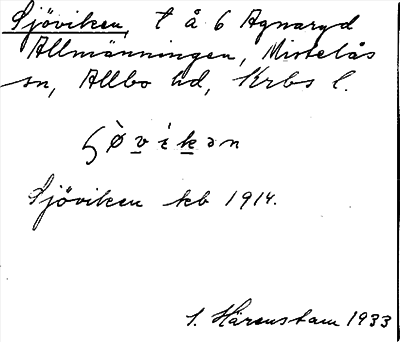 Sjöviken, t å 6 Agnaryd
Allmänningen, Mistelås
sn, Allbo hd, Krbs l.
ʃø̀vikən
Sjöviken kb 1914.
S. Härenstam 1933